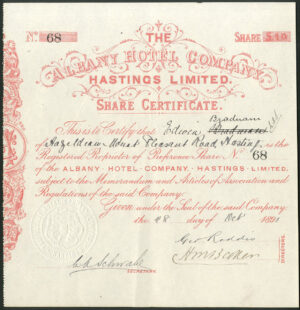 No 68
SHARE £10
THE
ALBANY HOTEL COMPANY,
HASTINGS LIMITED.
SHARE CERTIFICATE.
Bradnam
This is to Certify that Edwin
of Hazeldean Mount Pleasant Road, Hastings is the
Registered Proprietor of Preference Share No 68
of the ALBANY - HOTEL - COMPANY - HASTINGS - LIMITED.
subject to the Memorandum and Articles of Association and
Regulations of the said Company:
Given under the Seal of the said Company
the 28 day of Oct
Geo
SECRETARY.
DIRECTORS.